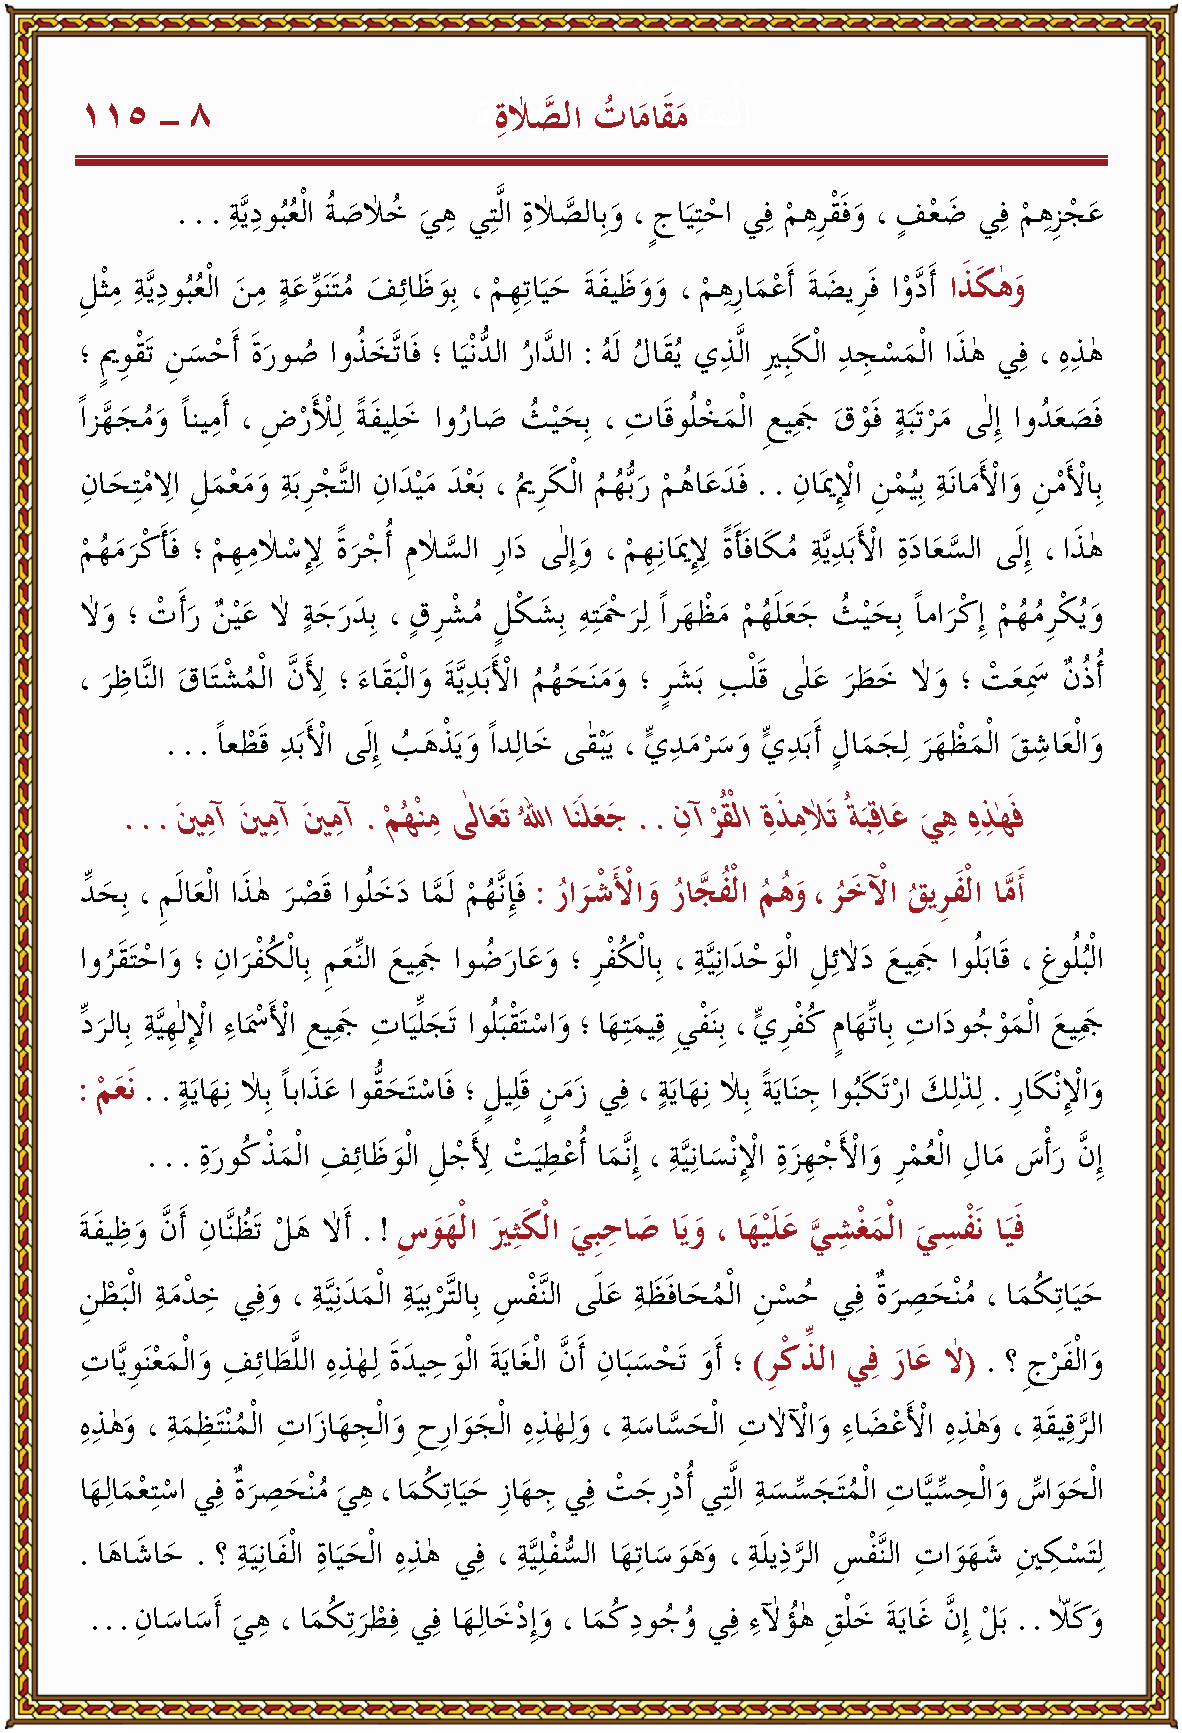 مَقَامَاتُ الصَّلَاةِ ٨ ـ ١١٥
عَجْزِهِمْ فِي ضَعْفٍ ، وَفَقْرِهِمْ فِي احْتِيَاجٍ ، وَبِالصَّلَاةِ الَّتِي هِيَ خُلَاصَةُ الْعُبُودِيَّةِ . . .
وَهٰكَذَا أَدَّوْا فَرِيضَةَ أَعْمَارِهِمْ ، وَوَظِيفَةَ حَيَاتِهِمْ ، بِوَظَائِفَ مُتَنَوِّعَةٍ مِنَ الْعُبُودِيَّةِ مِثْلِ
هٰذِهِ ، فِي هٰذَا الْمَسْجِدِ الْكَبِيرِ الَّذِي يُقَالُ لَهُ : الدَّارُ الدُّنْيَا ؛ فَاتَّخَذُوا صُورَةَ أَحْسَنِ تَقْوِيمٍ ؛
فَصَعَدُوا إِلٰى مَرْتَبَةٍ فَوْقَ جَمِيعِ الْمَخْلُوقَاتِ ، بِحَيْثُ صَارُوا خَلِيفَةً لِلْأَرْضِ ، أَمِيناً وَمُجَهَّزاً
بِالْأَمْنِ وَالْأَمَانَةِ بِيُمْنِ الْإِيمَانِ . . فَدَعَاهُمْ رَبُّهُمُ الْكَرِيمُ ، بَعْدَ مَيْدَانِ التَّجْرِبَةِ وَمَعْمَلِ الِامْتِحَانِ
هٰذَا ، إِلَى السَّعَادَةِ الْأَبَدِيَّةِ مُكَافَأَةً لِإِيمَانِهِمْ ، وَإِلٰى دَارِ السَّلَامِ أُجْرَةً لِإِسْلَامِهِمْ ؛ فَأَكْرَمَهُمْ
وَيُكْرِمُهُمْ إِكْرَاماً بِحَيْثُ جَعَلَهُمْ مَظْهَراً لِرَحْمَتِهِ بِشَكْلٍ مُشْرِقٍ ، بِدَرَجَةٍ لَا عَيْنٌ رَأَتْ ؛ وَلَا
أُذُنٌ سَمِعَتْ ؛ وَلَا خَطَرَ عَلٰى قَلْبِ بَشَرٍ ؛ وَمَنَحَهُمُ الْأَبَدِيَّةَ وَالْبَقَاءَ ؛ لِأَنَّ الْمُشْتَاقَ النَّاظِرَ ،
وَالْعَاشِقَ الْمَظْهَرَ لِجَمَالٍ أَبَدِيٍّ وَسَرْمَدِيٍّ ، يَبْقٰى خَالِداً وَيَذْهَبُ إِلَى الْأَبَدِ قَطْعاً . . .
فَهٰذِهِ هِيَ عَاقِبَةُ تَلَامِذَةِ الْقُرْآنِ . . جَعَلَنَا اللهُ تَعَالٰى مِنْهُمْ . آمِينَ آمِينَ آمِينَ . . .
أَمَّا الْفَرِيقُ الْآخَرُ ، وَهُمُ الْفُجَّارُ وَالْأَشْرَارُ : فَإِنَّهُمْ لَمَّا دَخَلُوا قَصْرَ هٰذَا الْعَالَمِ ، بِحَدِّ
الْبُلُوغِ ، قَابَلُوا جَمِيعَ دَلَائِلِ الْوَحْدَانِيَّةِ ، بِالْكُفْرِ ؛ وَعَارَضُوا جَمِيعَ النِّعَمِ بِالْكُفْرَانِ ؛ وَاحْتَقَرُوا
جَمِيعَ الْمَوْجُودَاتِ بِاتِّهَامٍ كُفْرِيٍّ ، بِنَفْيِ قِيمَتِهَا ؛ وَاسْتَقْبَلُوا تَجَلِّيَاتِ جَمِيعِ الْأَسْمَاءِ الْإِلٰهِيَّةِ بِالرَّدِّ
وَالْإِنْكَارِ . لِذٰلِكَ ارْتَكَبُوا جِنَايَةً بِلَا نِهَايَةٍ ، فِي زَمَنٍ قَلِيلٍ ؛ فَاسْتَحَقُّوا عَذَاباً بِلَا نِهَايَةٍ . . نَعَمْ :
إِنَّ رَأْسَ مَالِ الْعُمْرِ وَالْأَجْهِزَةِ الْإِنْسَانِيَّةِ ، إِنَّمَا أُعْطِيَتْ لِأَجْلِ الْوَظَائِفِ الْمَذْكُورَةِ . . .
فَيَا نَفْسِيَ الْمَغْشِيَّ عَلَيْهَا ، وَيَا صَاحِبِيَ الْكَثِيرَ الْهَوَسِ ! . أَلَا هَلْ تَظُنَّانِ أَنَّ وَظِيفَةَ
حَيَاتِكُمَا ، مُنْحَصِرَةٌ فِي حُسْنِ الْمُحَافَظَةِ عَلَى النَّفْسِ بِالتَّرْبِيَةِ الْمَدَنِيَّةِ ، وَفِي خِدْمَةِ الْبَطْنِ
وَالْفَرْجِ ؟ . (لَا عَارَ فِي الذِّكْرِ) ؛ أَوَ تَحْسَبَانِ أَنَّ الْغَايَةَ الْوَحِيدَةَ لِهٰذِهِ اللَّطَائِفِ وَالْمَعْنَوِيَّاتِ
الرَّقِيقَةِ ، وَهٰذِهِ الْأَعْضَاءِ وَالْآلَاتِ الْحَسَّاسَةِ ، وَلِهٰذِهِ الْجَوَارِحِ وَالْجِهَازَاتِ الْمُنْتَظِمَةِ ، وَهٰذِهِ
الْحَوَاسِّ وَالْحِسِّيَّاتِ الْمُتَجَسِّسَةِ الَّتِي أُدْرِجَتْ فِي جِهَازِ حَيَاتِكُمَا ، هِيَ مُنْحَصِرَةٌ فِي اسْتِعْمَالِهَا
لِتَسْكِينِ شَهَوَاتِ النَّفْسِ الرَّذِيلَةِ ، وَهَوَسَاتِهَا السُّفْلِيَّةِ ، فِي هٰذِهِ الْحَيَاةِ الْفَانِيَةِ ؟ . حَاشَاهَا .
وَكَلَّا . . بَلْ إِنَّ غَايَةَ خَلْقِ هٰؤُلَاءِ فِي وُجُودِكُمَا ، وَإِدْخَالِهَا فِي فِطْرَتِكُمَا ، هِيَ أَسَاسَانِ . . .